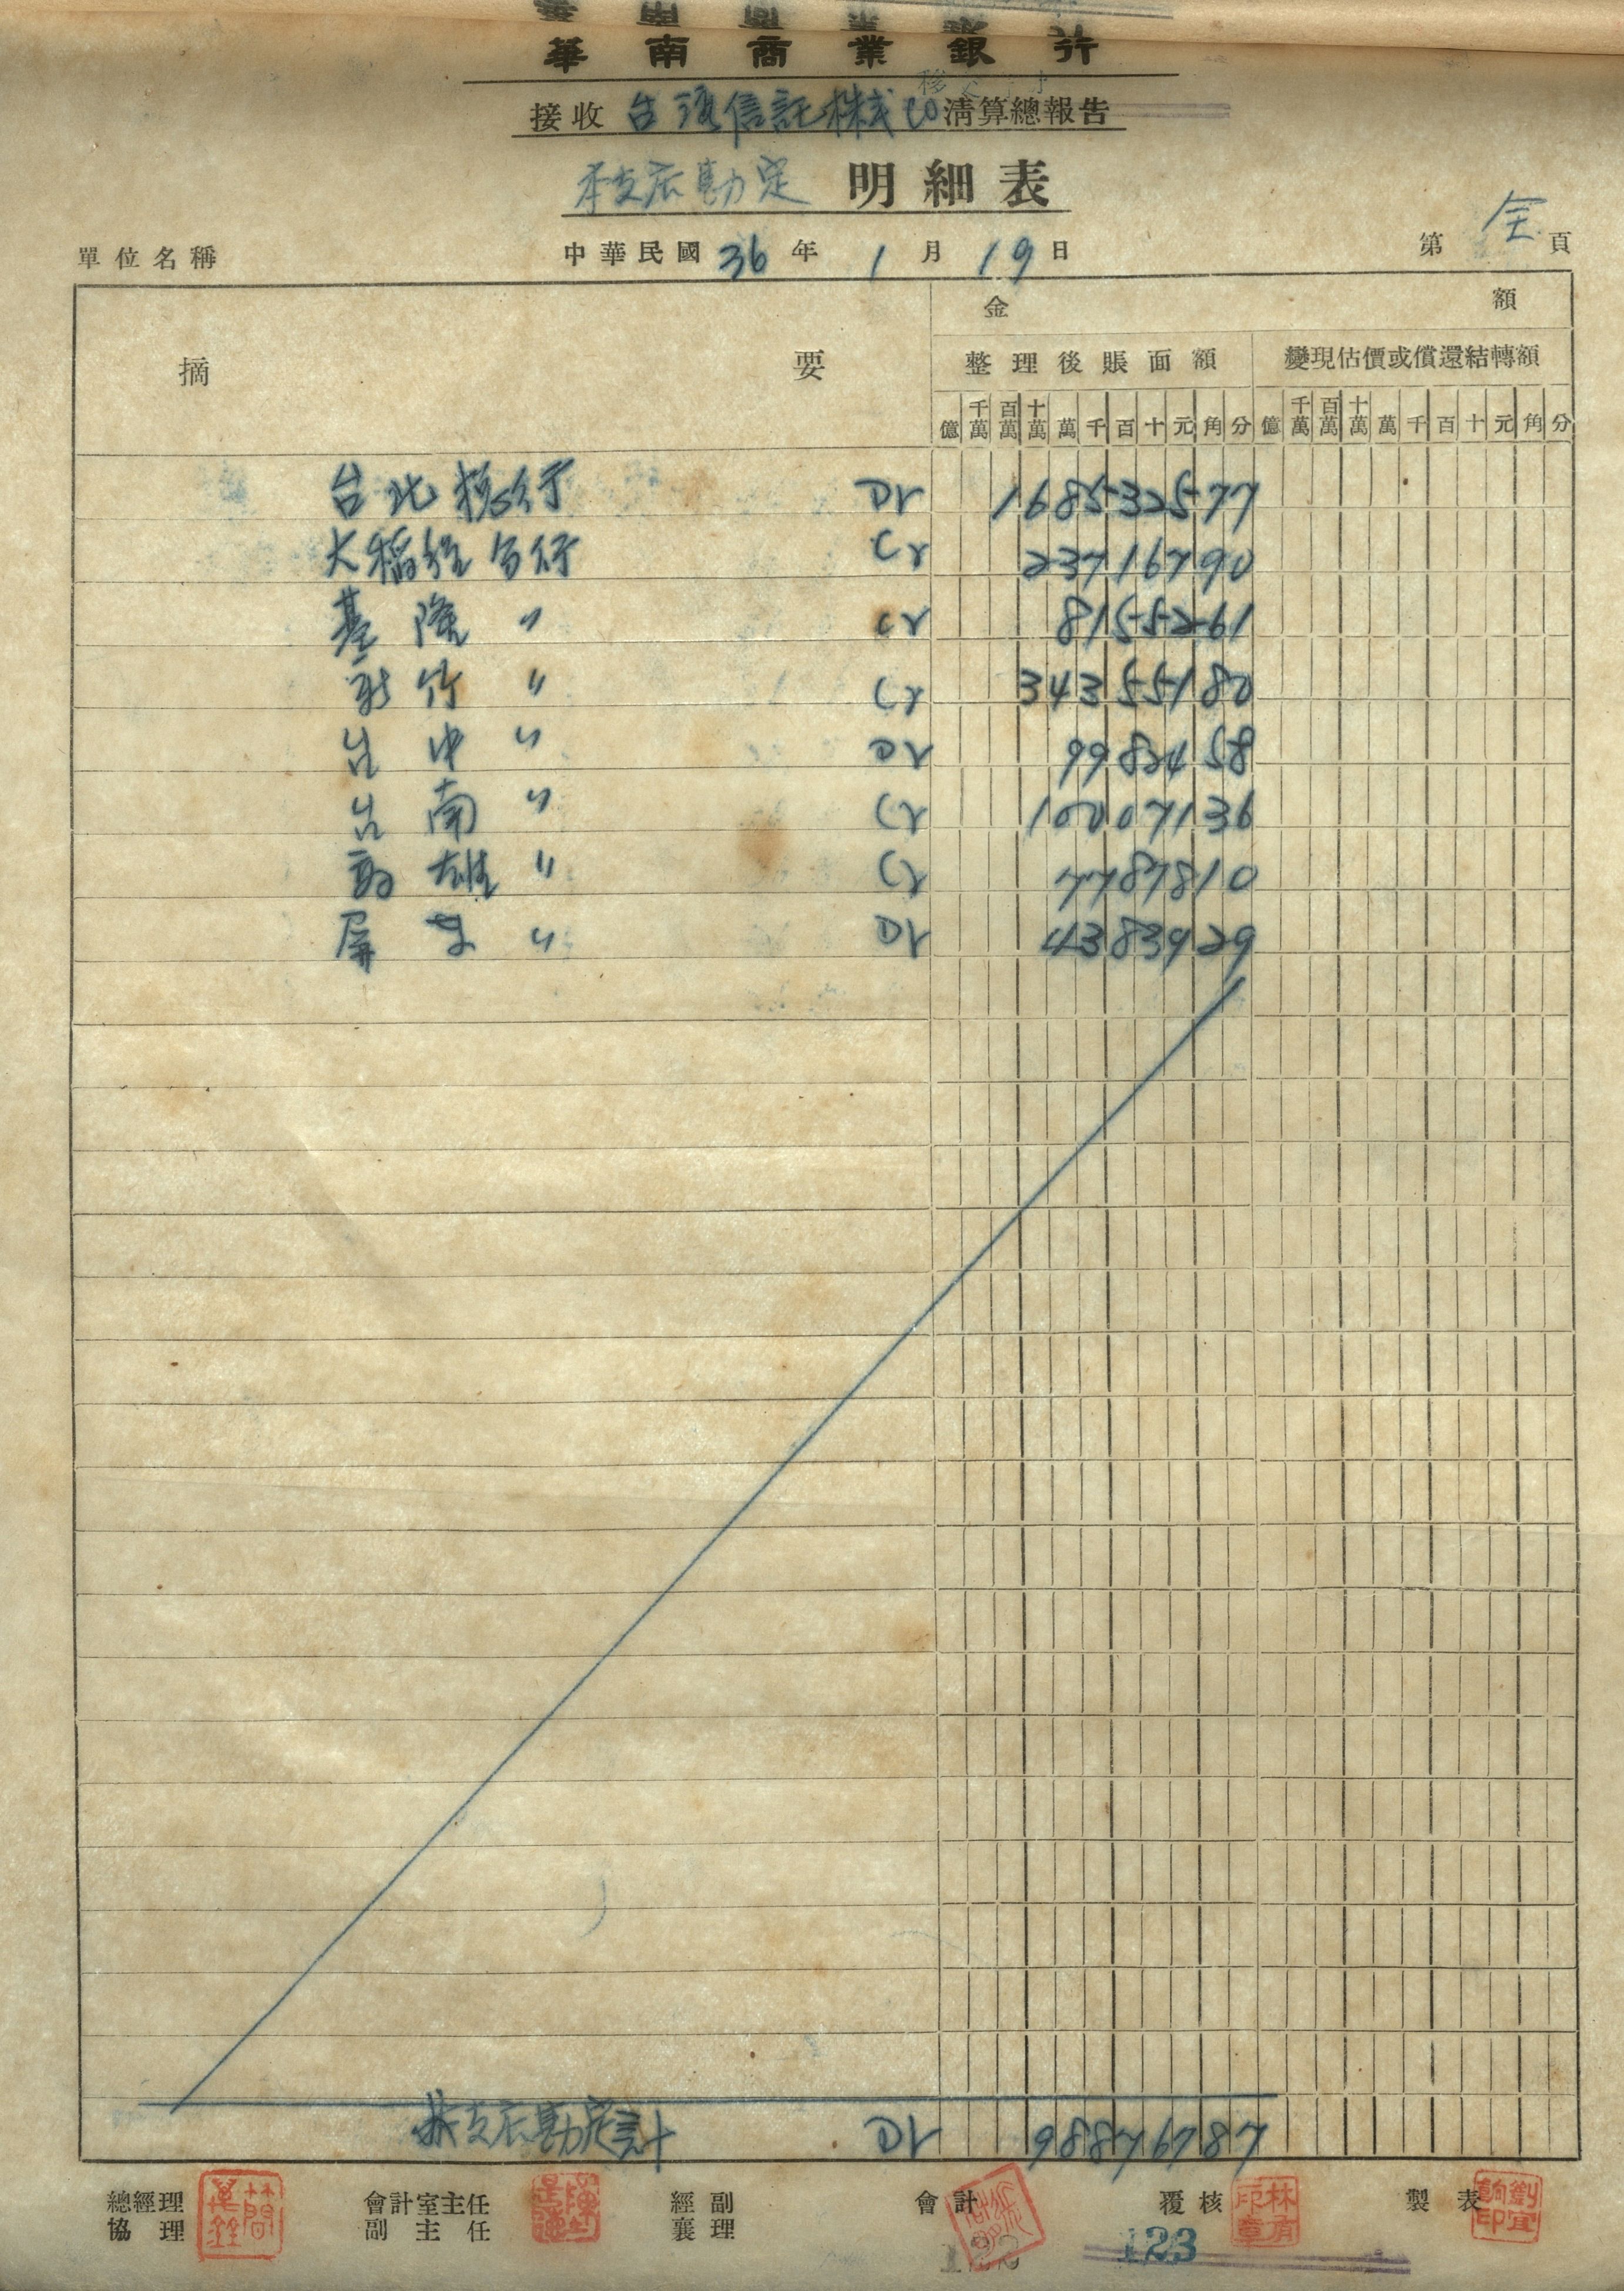 華南商業銀行
接收 台湾信託株式 清算總報告
本支店勘定 明細表
單位名稱 中華民國 36 年 1 月 19 日 第 全 頁
摘要 金額
整理後賬面額 變現估價或償還結轉額
億 千萬 百萬 十萬 萬 千 百 十 元 角 分 億 千萬 百萬 十萬 萬 千 百 十 元 角 分
台北總行 Dr 168532577
大稻埕分行 Cr 23716790
基隆 〃 Cr 8155261
新竹 〃 Cr 34355180
台中 〃 Dr 9982458
台南 〃 Cr 10007136
高雄 〃 Cr 7787810
屏東 〃 Dr 4383929
本支店勘定計 Dr 98876787
總經理 會計室主任 經副 會計 覆核 製表
協理 副主任 襄理
123